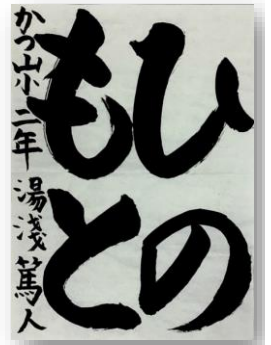 ひの
もと
かつ山小二年 湯淺篤人